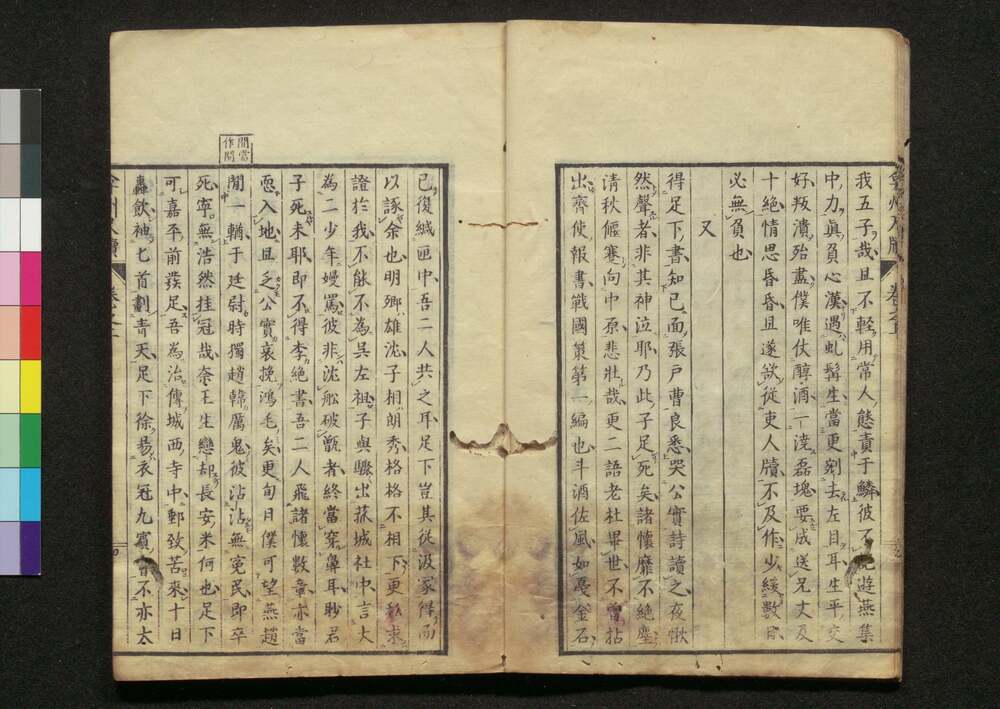 我五子哉且不輕用常人慾責于鱗彼不見遊燕集
中力真負心漢遇虬髯生當更剜去左目耳生平交
好叛潰殆盡僕唯仗醇酒一澆磊塊要成送兄丈及
十絕情思昏昏且遂欲從吏人牘不及作少緩數日
必無負也
又
得足下書知已面張戶曹良悉哭公實詩讀之夜愀
然聲者非其神泣耶乃此子足死矣諸懷靡不絕塵
清秋偃蹇向中原悲壯哉更二語老杜畢世不曾拈
出齊使報書戰國策第一編也斗酒佐風如戛金石
已復緘匝中吾二人共之耳足下豈其從汲冢得而
以諑余也明卿雄沈子相朗秀格格不相下更
求
證於我不能不為吳左袒子與驟出葆城社中言大
為二少年嫚罵彼非沈船破甑者終當穿鼻耳眇君
子死未耶即不得李絕書吾二人飛諸懷數章亦當
恧入地且乏公實哀挽鴻毛矣更旬日僕可望燕趙
開當
作間
閒一輶于廷尉時獨趙韓厲鬼彼沾沾無冤民即卒
死寧無浩然挂冠哉奈王生戀却長安米何也足下
可嘉平前發足吾為治傳城西寺中郵致苦來十日
轟飲袖匕首劃青天足下徐易衣冠九賓
不亦太